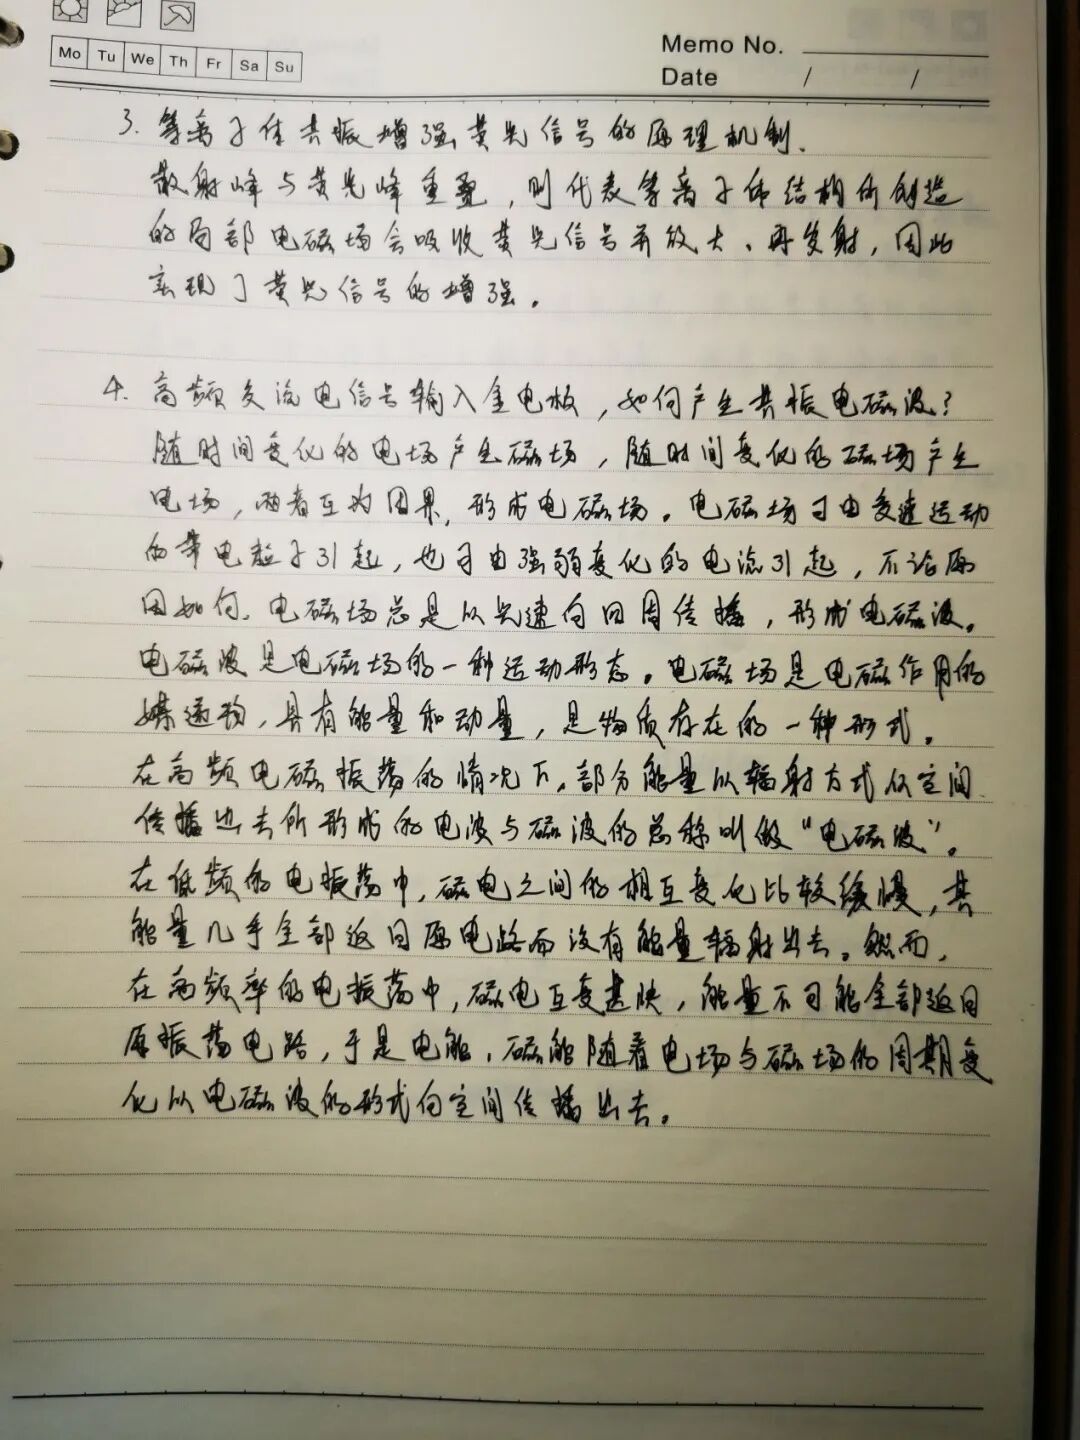 Mo Tu We Th Fr Sa Su
Memo No.
Date / /
3. 等离子体共振增强荧光信号的原理机制.
散射峰与荧光峰重叠，则代表等离子体结构所创造
的局部电磁场会吸收荧光信号并放大、再发射，因此
实现了荧光信号的增强。
4. 高频交流电信号输入金电极，如何产生共振电磁波？
随时间变化的电场产生磁场，随时间变化的磁场产生
电场，两者互为因果，形成电磁场。电磁场可由变速运动
的带电粒子引起，也可由强弱变化的电流引起，不论原
因如何，电磁场总是以光速向四周传播，形成电磁波。
电磁波是电磁场的一种运动形态。电磁场是电磁作用的
媒递物，具有能量和动量，是物质存在的一种形式。
在高频电磁振荡的情况下，部分能量以辐射方式从空间
传播出去所形成的电波与磁波的总称叫做“电磁波”。
在低频的电振荡中，磁电之间的相互变化比较缓慢，其
能量几乎全部返回原电路而没有能量辐射出去。然而，
在高频率的电振荡中，磁电互变甚快，能量不可能全部返回
原振荡电路，于是电能、磁能随着电场与磁场的周期变
化以电磁波的形式向空间传播出去。